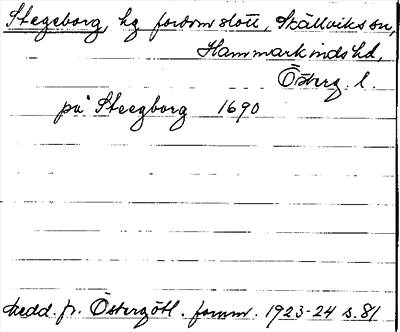 Stegeborg, kg fordom slott, Skällviks sn,
Hammarkinds hd,
Österg. l.
på Steegborg 1690
Medd. fr. Östergötl. fornm. 1923-24 s. 81